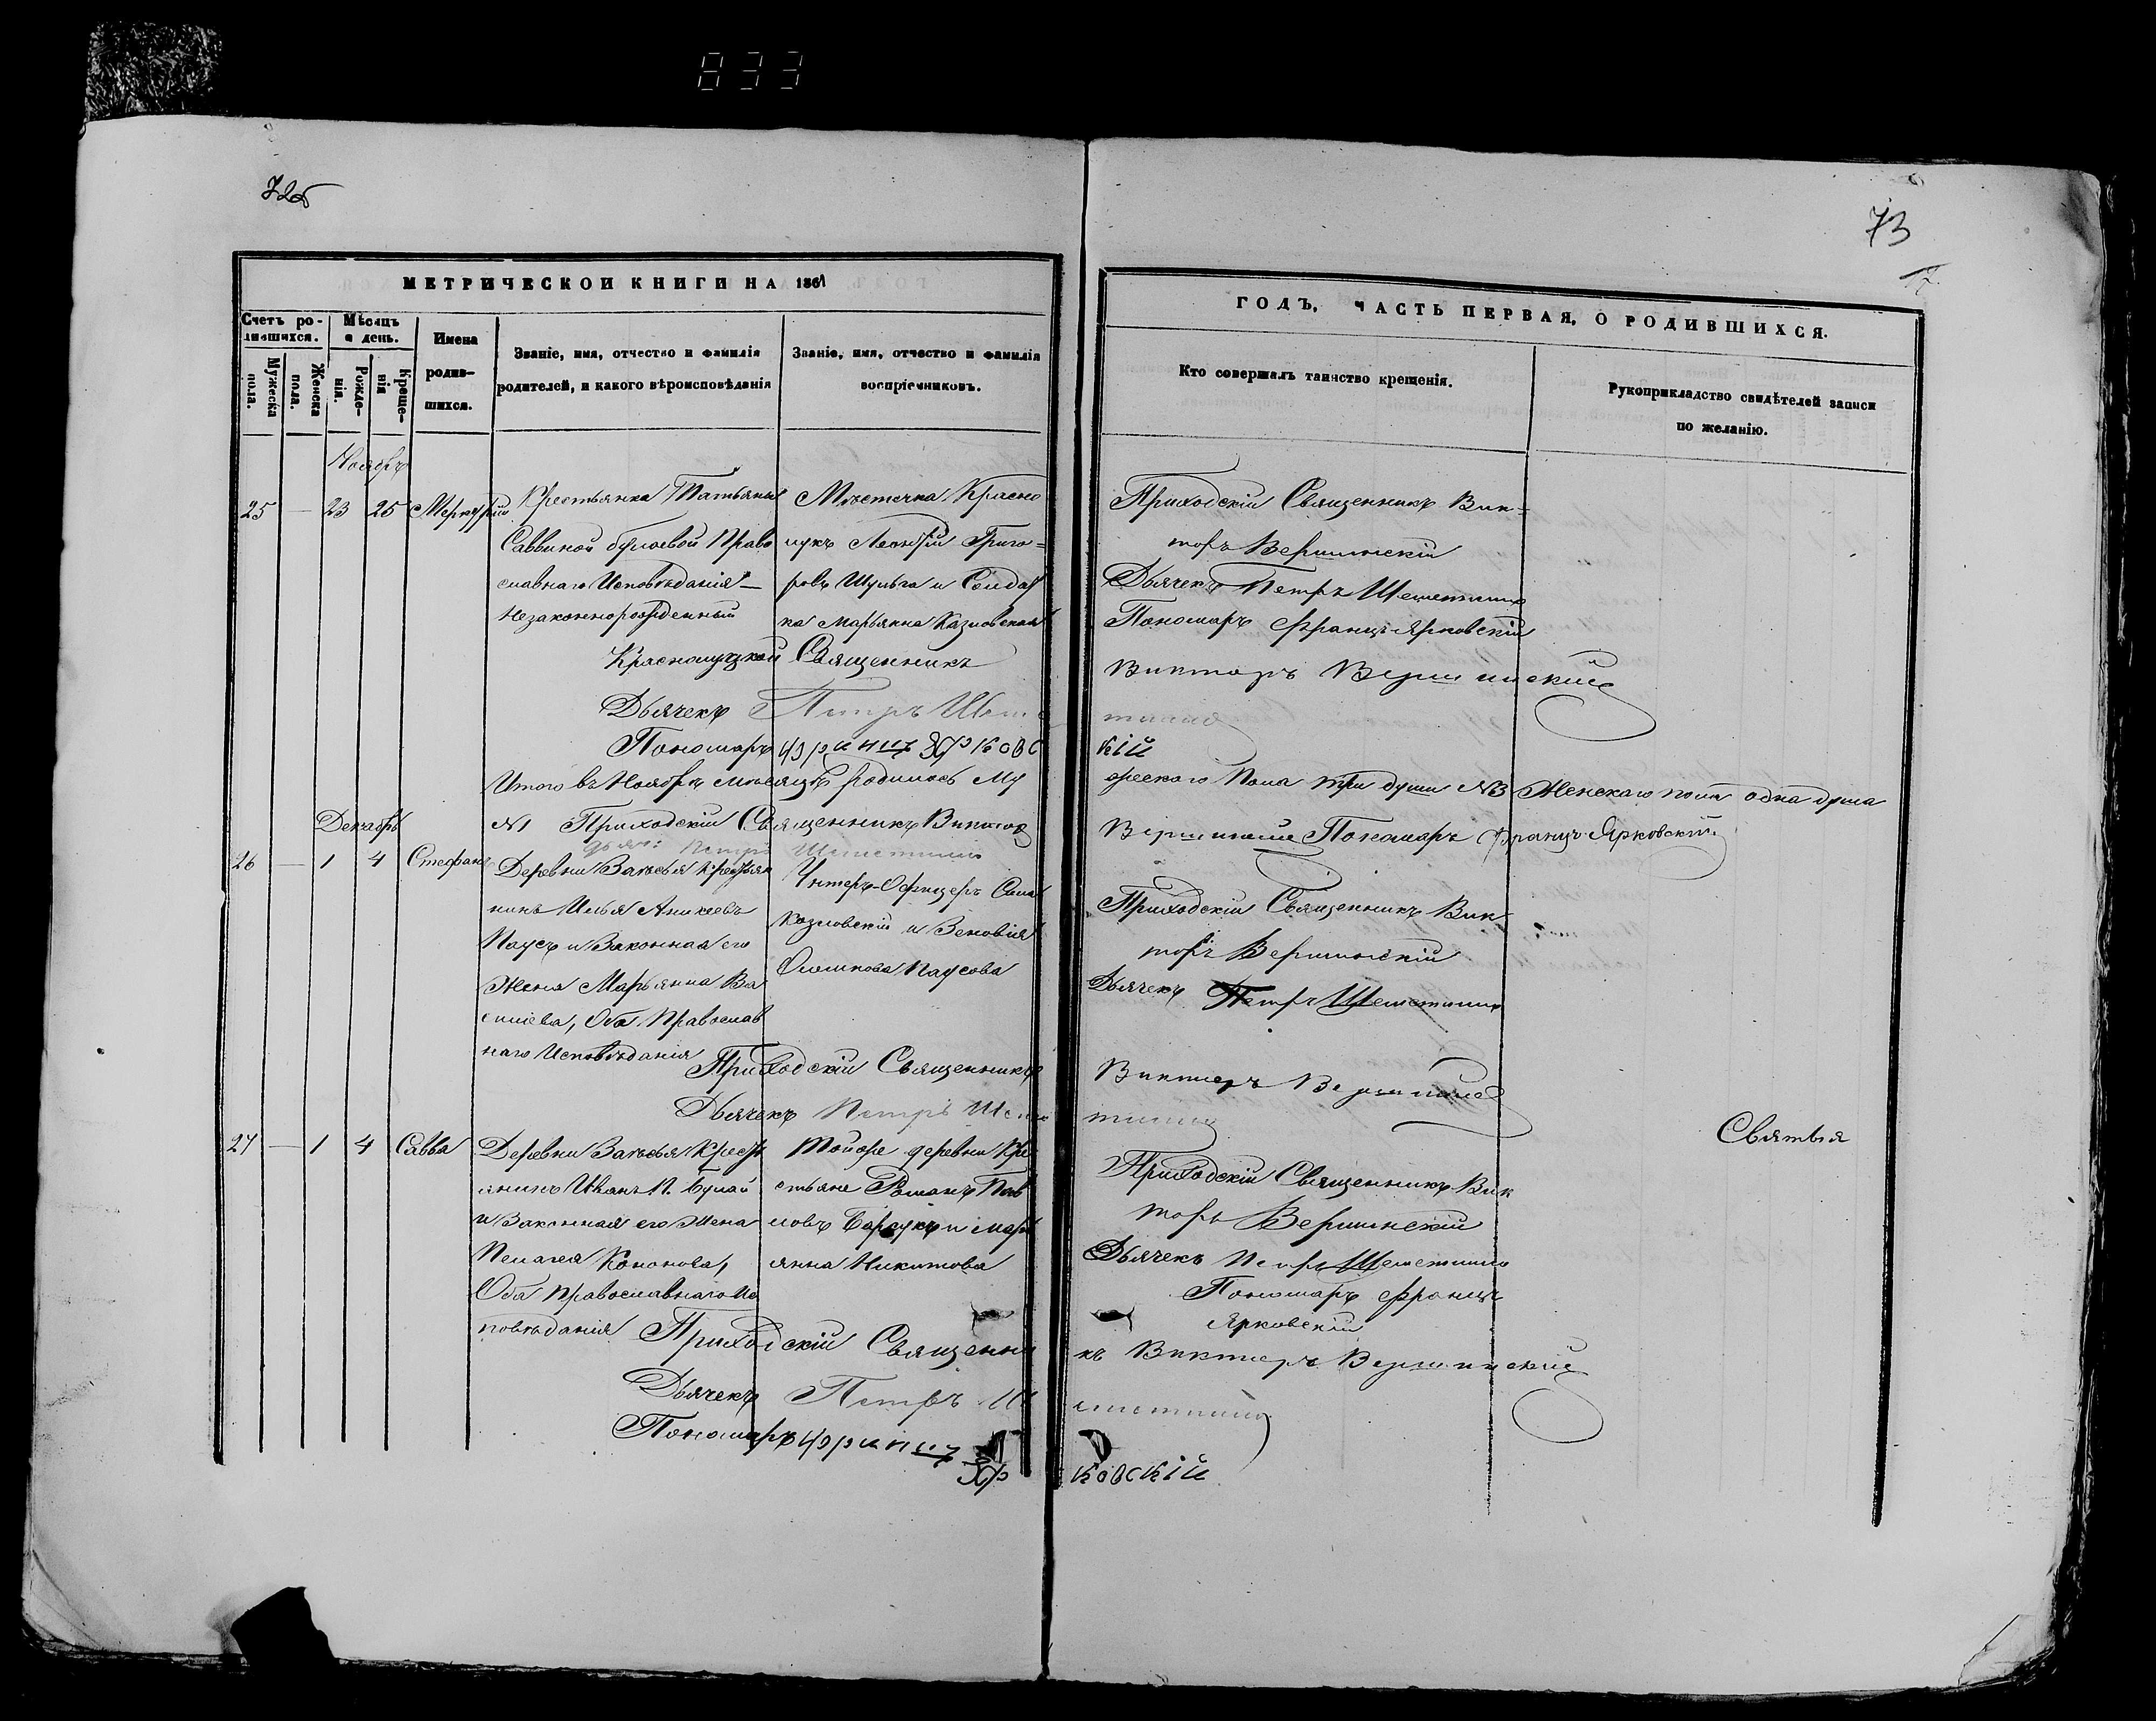 833
72об
73
17
МЕТРИЧЕСКОЙ КНИГИ НА 1861
ГОДЪ, ЧАСТЬ ПЕРВАЯ, О РОДИВШИХСЯ.
Счетъ ро-
дившихся.
Мужеска
пола.
Женска
пола.
Мѣсяцъ
и день.
Рожде-
нія.
Креще-
нія
Имена
родив-
шихся.
Званіе, имя, отчество и фамилія
родителей, и какого вѣроисповѣданія
Званіе, имя, отчество и фамилія
воспріемниковъ.
Кто совершалъ таинство крещенія.
Рукоприкладство свидѣтелей записи
по желанію.
Ноябрь
25 — 23 25 Меркурій
Крестьянка Татьяна
Саввиной Православнаго Исповѣданія —
Незаконнорожденный
Мѣстечка Красно
лукъ Леонтій Григо=
ровъ Шульга и Солдат
ка Марьяна Казловская
Приходскій Священникъ Вик=
торъ Вершинскій
Дьячекъ Петръ Шелепино
Пономаръ Францъ Ярковскій
Краснолуцкой Священникъ Викторъ Вершинскій
Дьячекъ Петръ
Пономаръ Францъ Ярковскій
Итого въ Ноябрѣ мѣсяцѣ родилось Мужескаго Пола три души №3 Женскаго пола одна душа
№1 Приходскій Священникъ Викторъ Вершинскій Пономаръ Францъ Ярковскій
Дьяч: Петръ
Декабрь
26 — 1 4 Стефанъ
Деревни Замсья Крестьян
нинъ Илья
Паусъ и Законная его
Жена Марьяна Ва
силіева, Оба Православ
наго Исповѣданія
Унтеръ-Офицеръ
Козловскій и Зеновія
Паусова
Приходскій Священникъ Вик
торъ Вершинскій
Дьячекъ Петръ
Приходскій Священникъ Викторъ Вершинскій
Дьячекъ Петръ
27 — 1 4 Савва
Деревни Замсья Кресть
янинъ Иванъ П. Булай
и Законная его Жена
Пелагея Кононова,
Оба Православнаго Ис
повѣданія
Тойже деревни Кре
стьяне Романъ Пав
ловъ Барсукъ и Марь
янна Никитова
Приходскій Священникъ Вик
торъ Вершинскій
Дьячекъ Петръ
Пономаръ Францъ
Ярковскій
Святыя
Приходскій Священникъ Викторъ Вершинскій
Дьячекъ Петръ
Пономаръ Францъ Ярковскій